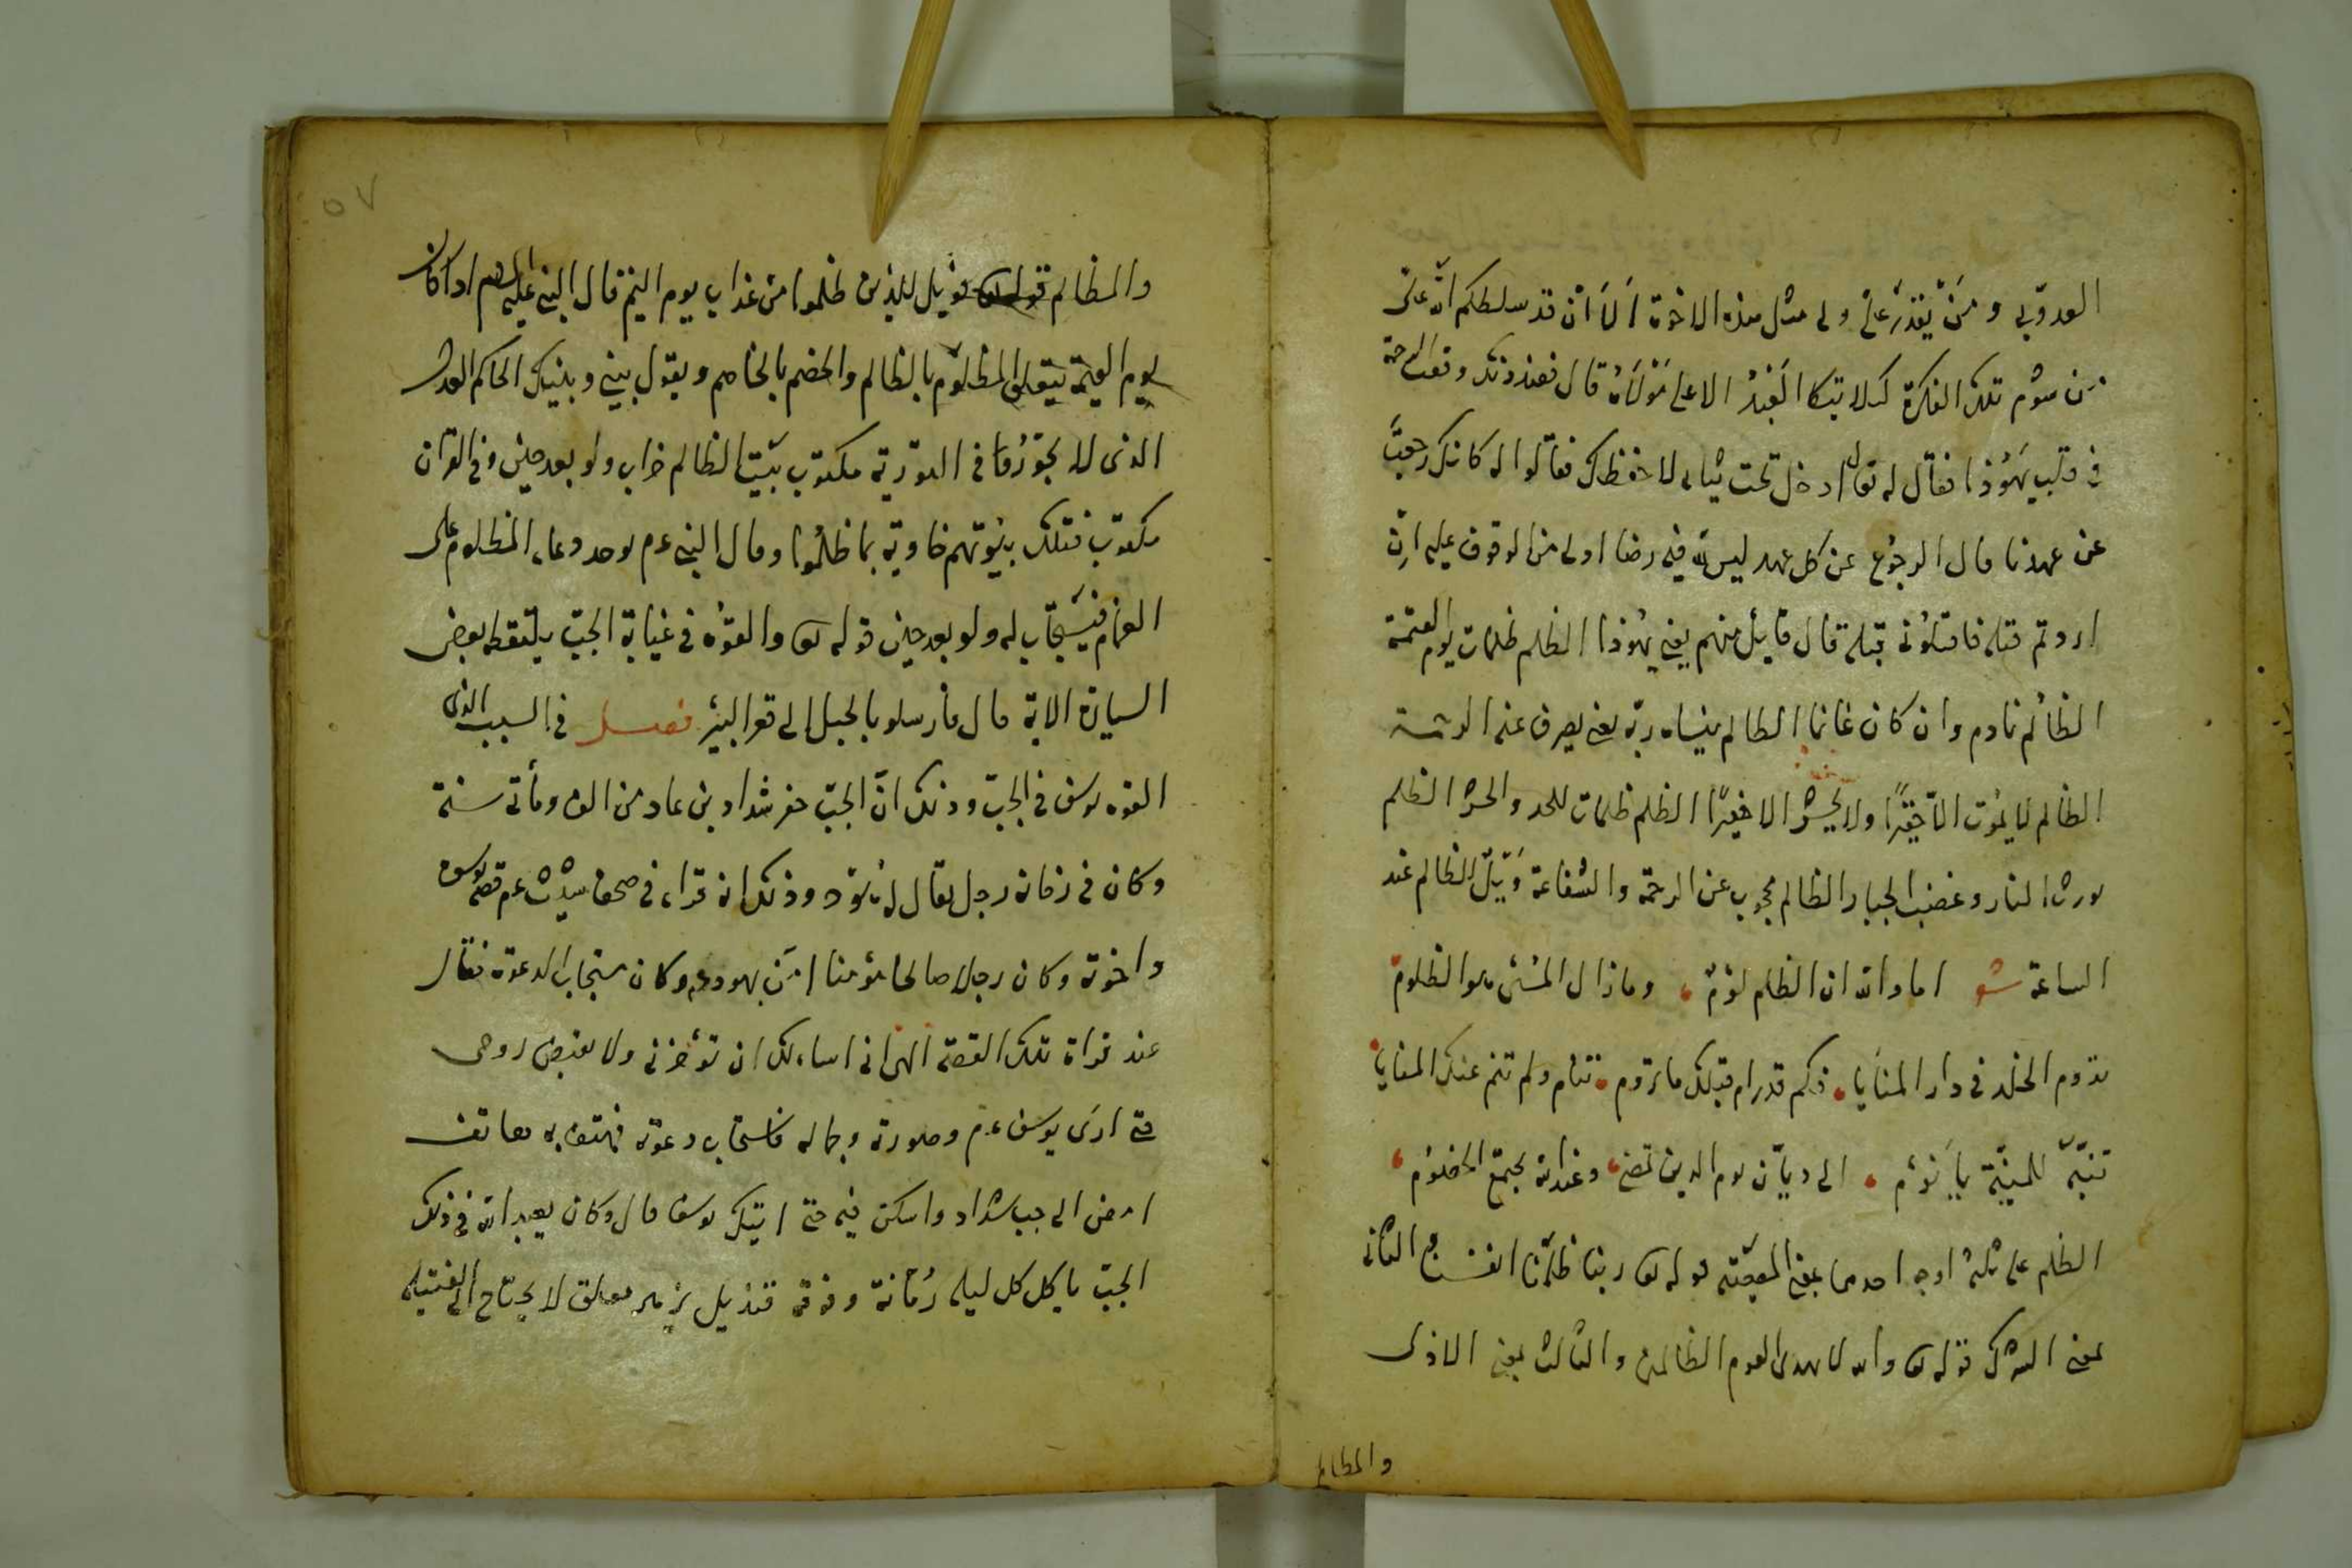 العدو بي ومن يقدر علي ولي مثل هذه الاخوة الا ان قد سلطكم الله علي
من شوم تلك الفكرة كيلا يتكا العبد الا على مولاه قال فعند ذلك وقعت الرحمة
في قلب يهوذا فقال له تعال ادخل تحت ثيابي لاحفظك فقالوا له كانك رجعت
عن عهدنا قال الرجوع عن كل عهد ليس لله فيه رضا اولى من الوقوف عليه ان
اردتم قتله فاقتلوني قبله قال قايل منهم يعني يهوذا الظلم ظلمات يوم القيمة
الظالم نادم وان كان غانما الظالم ينساه ربه يعني يصرف عنه
الظالم لا يموت الا حقيرا ولا يحشر الا حقيرا الظلم ظلمات للحد والحشر الظلم
يورث النار وغضب الجبار الظالم محجوب عن الرحمة والشفاعة ويل للظالم عند
الساعة شعر اما والله ان الظلم لؤم وما زال المسئ هو الظلوم
تروم الخلد في دار المنايا فكم قد رام قبلك ما تروم تنام ولم تنم عنك المنايا
تنبه للمنية يا نؤم الى ديان يوم الدين تمضي وعند الله يجتمع الخصوم
الظلم على ثلثة اوجه احدها بمعنى المعصية قوله تعالى ربنا ظلمنا انفسنا والثاني
بمعنى الشرك قوله تعالى والله لا يهدي القوم الظالمين والثالث بمعنى الاذى
والمظالم
٥٧
والمظالم قوله تعالى فويل للذين ظلموا من عذاب يوم اليم قال النبي عليه السلام اذا كان
يوم القيمة يتعلق المظلوم بالظالم والخصم بالخاصم ويقول بيني وبينك الحاكم العدل
الذي لا يجور وقال في التورية مكتوب بيت الظالم خراب ولو بعد حين وفي القران
مكتوب فتلك بيوتهم خاوية بما ظلموا وقال النبي عم يوجد دعاء المظلوم على
الغمام فيستجاب له ولو بعد حين قوله تعالى والقوه في غيابة الجب يلتقطه بعض
السيارة الاية قال فارسلو بالحبل الى قعر البير فصل في السبب الذي
القوه يوسف في الجب وذلك ان الجب حفر شداد بن عاد من الف ومأتي سنة
وكان في زمانه رجل يقال له هود وذلك انه قراء في صحف شيث عم قصة يوسف
واخوته وكان رجلا صالحا مؤمنا امن بهود عم وكان مستجاب الدعوة فقال
عند قراة تلك القصة الهي اني اساءلك ان تؤخرني ولا تقبض روحي
حتى ارى يوسف عم وصورته وجماله فاستجاب دعوته فهتف به هاتف
امض الى جب شداد واسكن فيه حتى اتيك يوسف قال وكان يعبد الله في ذلك
الجب ياكل كل ليلة رمانة وفوقه قنديل يزهر معلق لا يحتاج الى الفتيلة